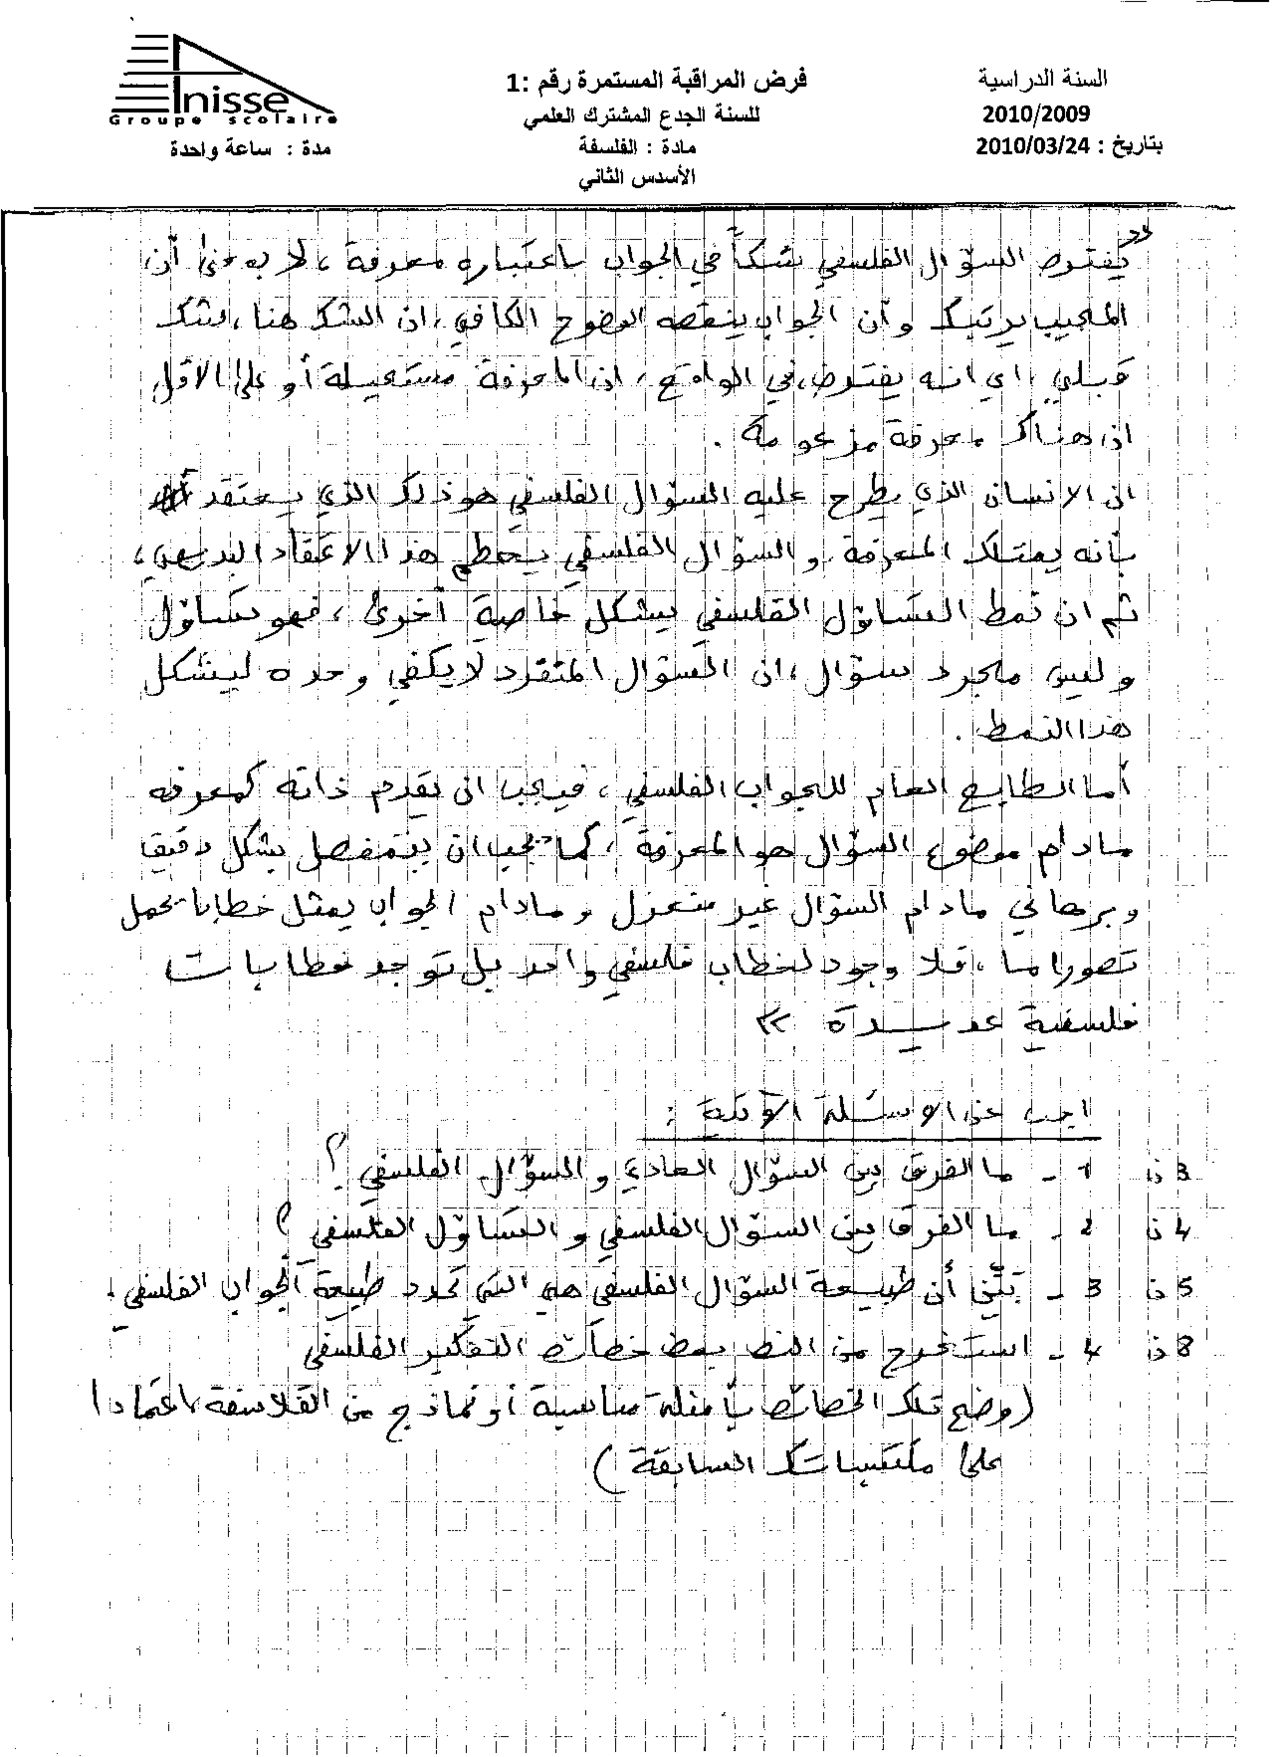 Anisse
Groupe scolaire
مدة : ساعة واحدة
فرض المراقبة المستمرة رقم :1
للسنة الجدع المشترك العلمي
مادة : الفلسفة
الأسدس الثاني
السنة الدراسية
2010/2009
بتاريخ : 2010/03/24
" يفترض السؤال الفلسفي شكاً في الجواب باعتباره معرفة ، لا بمعنى أن
المجيب يرتبك وأن الجواب ينقصه الوضوح الكافي ، ان الشك هنا ، شك
قبلي ، اي انه يفترض، في الواقع ، ان المعرفة مستحيلة أو على الاقل
ان هناك معرفة مزعومة .
ان الانسان الذي يطرح عليه السؤال الفلسفي هو ذلك الذي يعتقد
بأنه يمتلك المعرفة و السؤال الفلسفي يحطم هذا الاعتقاد البديهي ،
ثم ان نمط التساؤل الفلسفي يشكل خاصية أخرى ، فهو تساؤل
و ليس مجرد سؤال ، ان السؤال المتفرد لا يكفي وحده ليشكل
هذا النمط .
أما الطابع العام للجواب الفلسفي ، فيجب ان يقدم ذاته كمعرفه
مادام موضوع السؤال هو المعرفة ، كما يجب ان يتمفصل بشكل دقيق
و برهاني مادام السؤال غير منعزل و مادام الجواب يمثل خطابا يحمل
تصورا ما ، فلا وجود لخطاب فلسفي واحد بل توجد خطابات
فلسفية عديدة "
اجب عن الاسئلة الآتية :
3ن 1 - ما الفرق بين السؤال العادي و السؤال الفلسفي ؟
4ن 2 - ما الفرق بين السؤال الفلسفي و التساؤل الفلسفي ؟
5ن 3 - بيّني أن طبيعة السؤال الفلسفي هي التي تحدد طبيعة الجواب الفلسفي .
8ن 4 - استخرج من النص بعض خصائص التفكير الفلسفي
(وضح تلك الخصائص بأمثلة مناسبة أو نماذج من الفلاسفة ، اعتمادا
على مكتسباتك السابقة )